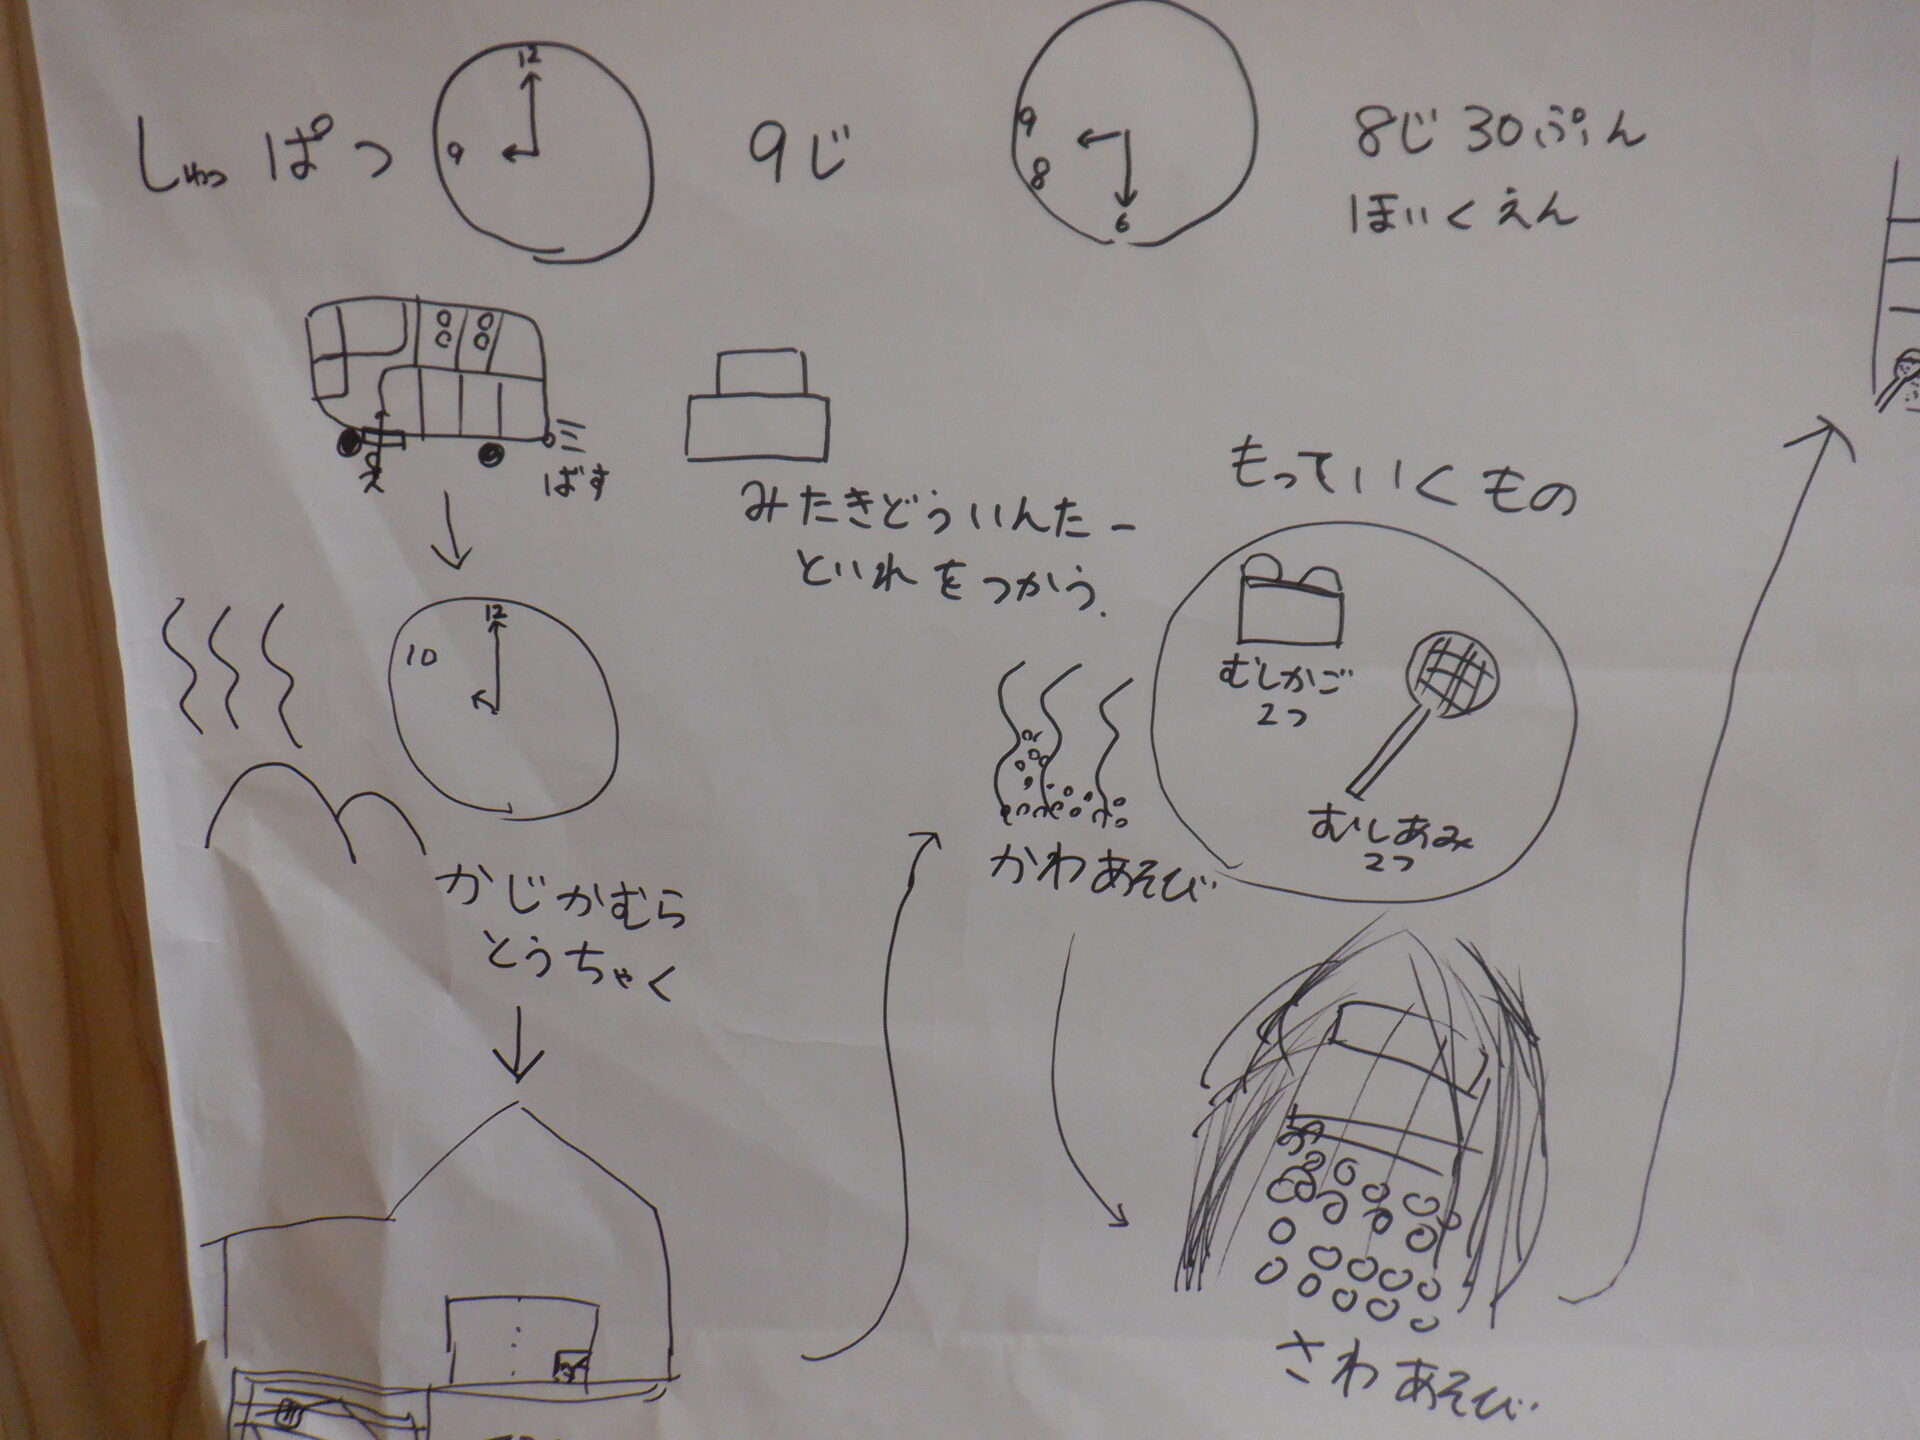 しゅっぱつ
12
9
9じ
9
8
6
8じ30ぷん
ほいくえん
ばす
みたきどういんたー
といれをつかう.
12
10
かじかむら
とうちゃく
もっていくもの
むしかご
2つ
むしあみ
2つ
かわあそび
さわあそび